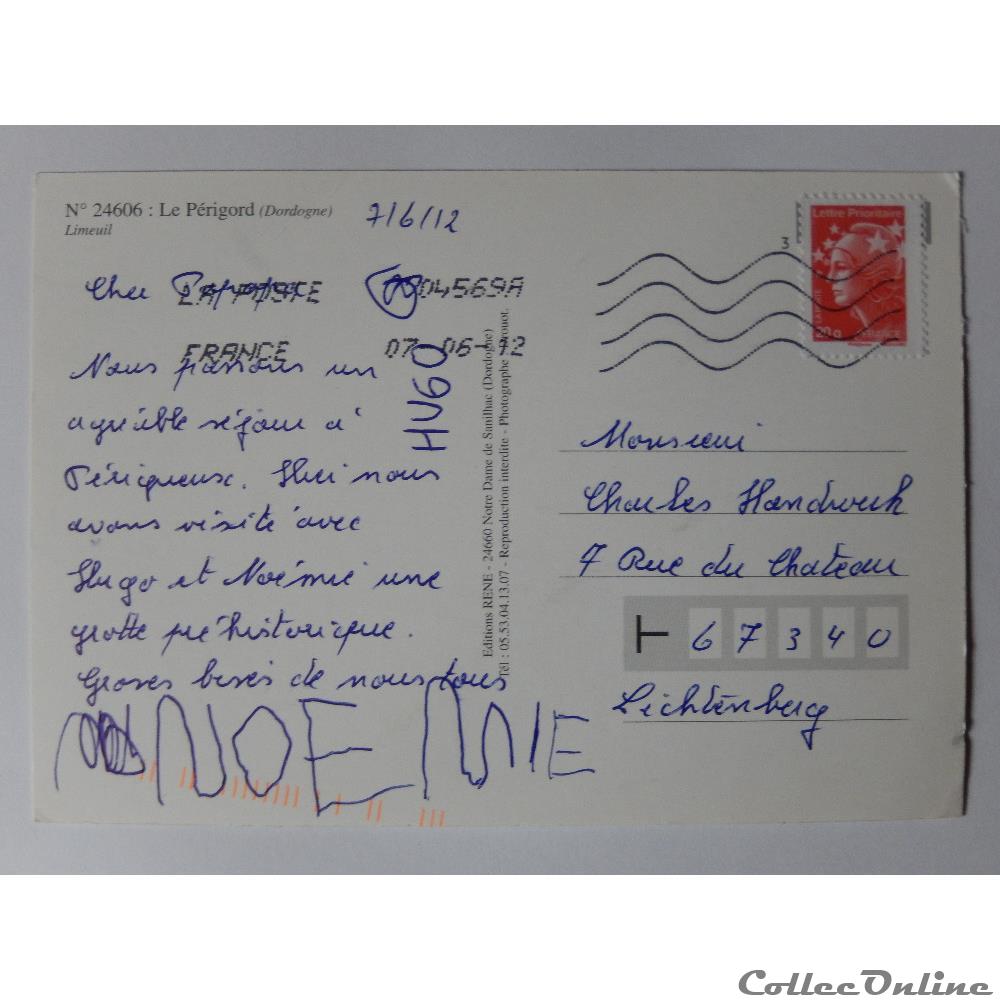 N° 24606 : Le Périgord (Dordogne)
Limeuil
7/6/12
Lettre Prioritaire
LA POSTE
20g FRANCE
3
Cher Papapa
LA POSTE 04569A
FRANCE 07-06-12
Nous passons un
agréable séjour à
Périgueux. Hier nous
avons visité avec
Hugo et Noémie une
grotte préhistorique.
Grosses bises de nous tous
HUGO
NOEMIE
Editions RENE - 24660 Notre Dame de Sanilhac (Dordogne)
Tél : 05.53.04.13.07 - Reproduction interdite - Photographe
Monsieur
Charles Handwerk
7 Rue du Chateau
67340
Lichtenberg
CollecOnline